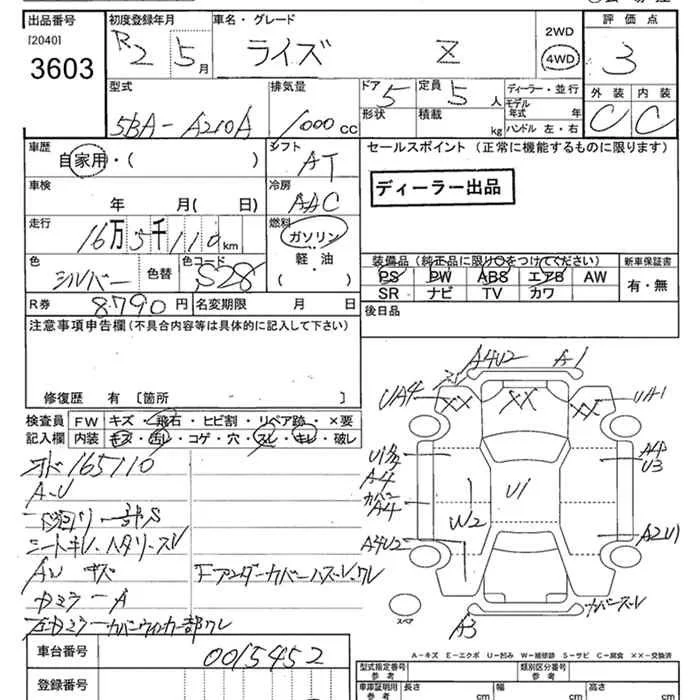 出品番号 初度登録年月 車名・グレード 評価点
[2040]
3603 R2 5月 ライズ Z 2WD 4WD 3
型式 排気量 ドア 5 定員 5人 ディーラー・並行 外装 内装
5BA-A210A 1000cc 形状 積載 kg モデル年式 年 C C
ハンドル 左・右
車歴 シフト セールスポイント(正常に機能するものに限ります)
自家用・( ) AT
車検 冷房 ディーラー出品
年 月( 日) AAC
走行 燃料
16万5千110km ガソリン
軽・油
( )
色 色替 色コード 装備品(純正品に限り○をつけてください) 新車保証書
シルバー S28 PS PW ABS エアB AW 有・無
SR ナビ TV カワ
R券 8790円 名変期限 月 日 後日品
注意事項申告欄(不具合内容等は具体的に記入して下さい)
修復歴 有 [箇所 ]
検査員 FW キズ・飛石・ヒビ割・リペア跡・×要
記入欄 内装 キズ・汚レ・コゲ・穴・スレ・キレ・破レ
165110
A・U
シートキレ
A
車台番号 0015452
登録番号
A4U2 A1
UA4 XX XX XX UA1
A4
U3
A4 U1
カバー
A4
W2
A4U2 A2U1
スペア A3 カバースレ
A-キズ E-エクボ U-凹み W-補修跡 S-サビ C-腐食 XX-交換済
型式指定番号 類別区分番号
参考 参考
車庫証明用 長さ 幅 高さ
参考 cm cm cm